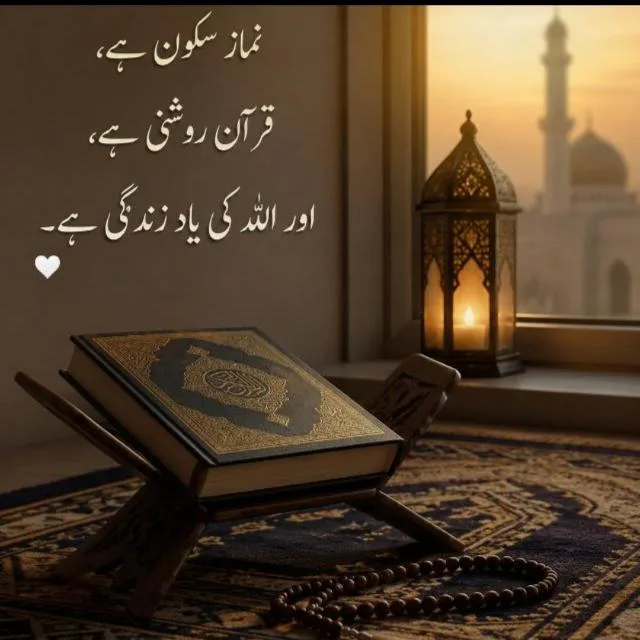 نماز سکون ہے،
قرآن روشنی ہے،
اور اللہ کی یاد زندگی ہے۔
🤍